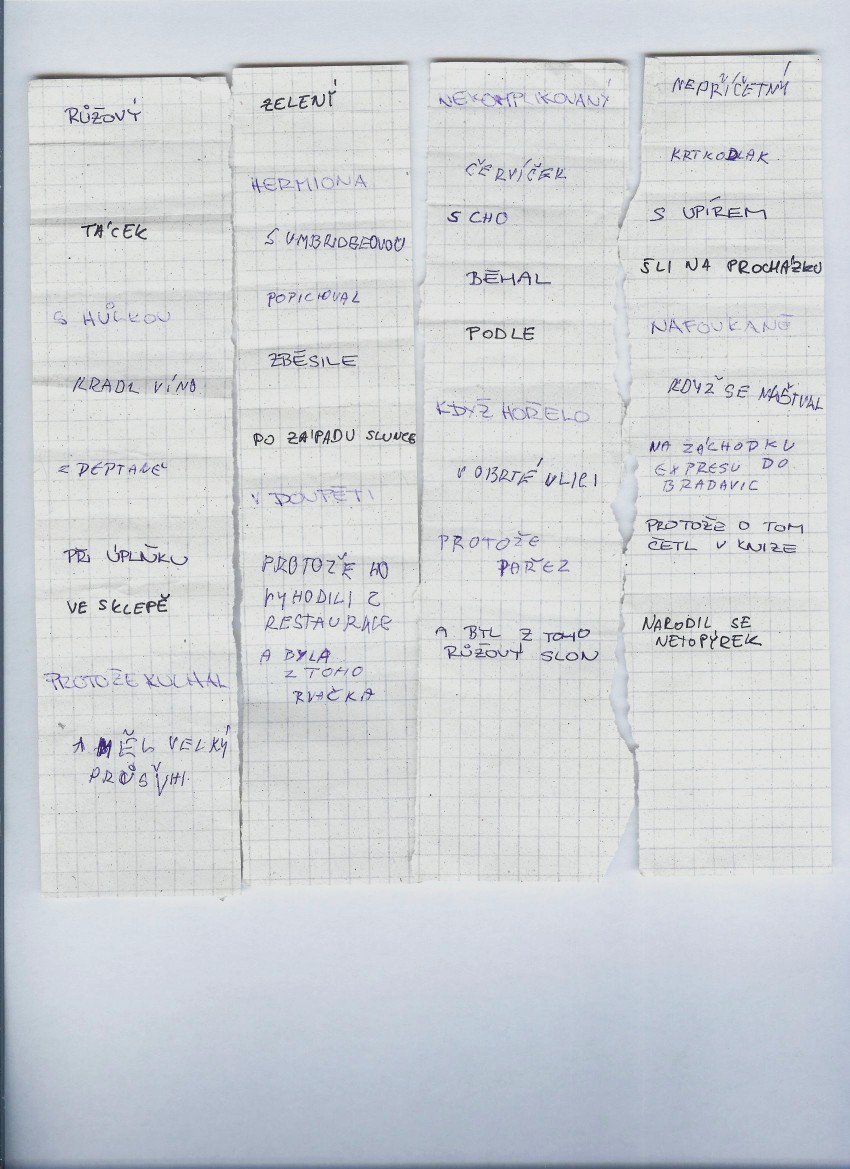 RŮŽOVÝ
TÁCEK
S HŮLKOU
KRADL VÍNO
ZDEPTANĚ
PŘI ÚPLŇKU
VE SKLEPĚ
PROTOŽE KUCHAL
A MĚL VELKÝ
PRŮŠVIH.
ZELENÝ
HERMIONA
S UMBRIDGEOVOU
POPICHOVAL
ZBĚSILE
PO ZÁPADU SLUNCE
V DOUPĚTI
PROTOŽE HO
VYHODILI Z
RESTAURACE
A BYLA
Z TOHO
RVAČKA
NEKOMPLIKOVANÝ
ČERVÍČEK
S CHO
BĚHAL
PODLE
KDYŽ HOŘELO
V OBRTÉ ULICI
PROTOŽE
PAŘEZ
A BYL Z TOHO
RŮŽOVÝ SLON
NEPŘÍČETNÝ
KRTKODLAK
S UPÍREM
ŠLI NA PROCHÁZKU
NAFOUKANĚ
KDYŽ SE NAŠTVAL
NA ZÁCHODKU
EXPRESU DO
BRADAVIC
PROTOŽE O TOM
ČETL V KNIZE
NARODIL SE
NETOPÝREK